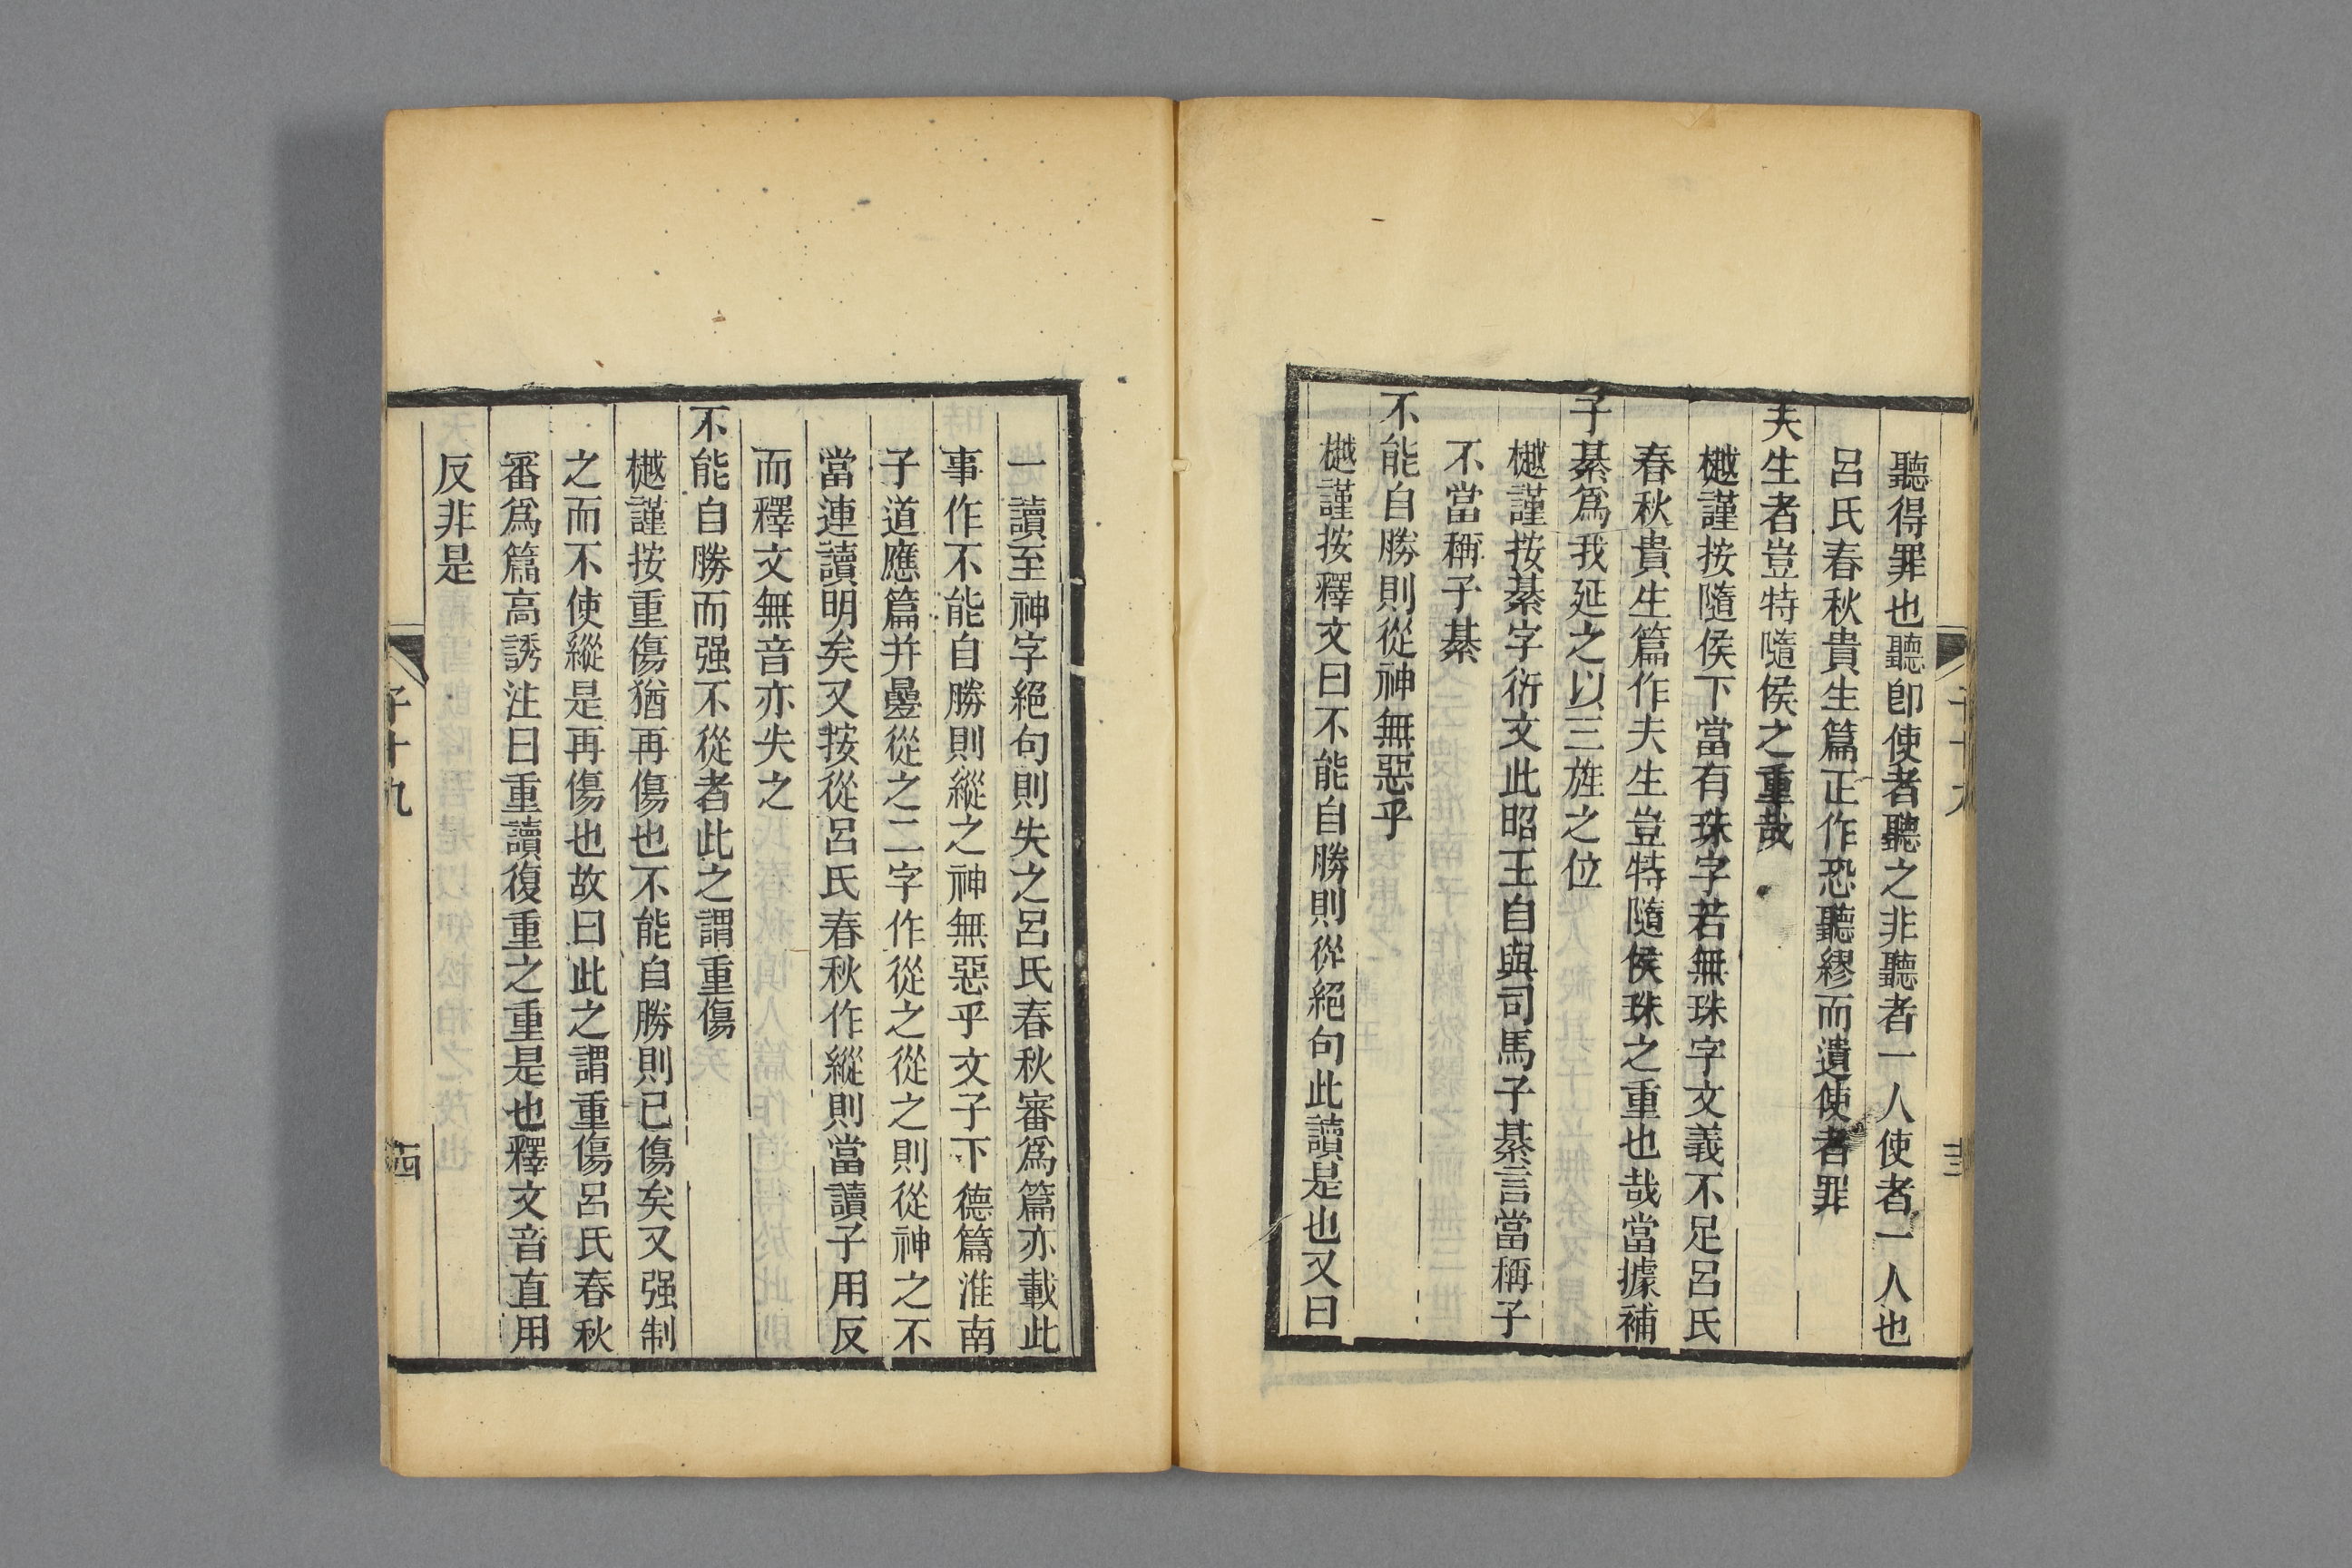 聽得罪也聽卽使者聽之非聽者一人使者一人也
呂氏春秋貴生篇正作恐聽繆而遺使者罪
夫生者豈特隨侯之重哉
樾謹按隨侯下當有珠字若無珠字文義不足呂氏
春秋貴生篇作夫生豈特隨侯珠之重也哉當據補
子綦爲我延之以三旌之位
樾謹按綦字衍文此昭王自與司馬子綦言當稱子
不當稱子綦
不能自勝則從神無惡乎
樾謹按釋文曰不能自勝則從絕句此讀是也又曰
一讀至神字絕句則失之呂氏春秋審爲篇亦載此
事作不能自勝則縱之神無惡乎文子下德篇淮南
子道應篇并疊從之二字作從之從之則從神之不
當連讀明矣又按從呂氏春秋作縱則當讀子用反
而釋文無音亦失之
不能自勝而强不從者此之謂重傷
樾謹按重傷猶再傷也不能自勝則已傷矣又强制
之而不使縱是再傷也故曰此之謂重傷呂氏春秋
審爲篇高誘注曰重讀復重之重是也釋文音直用
反非是
子十九